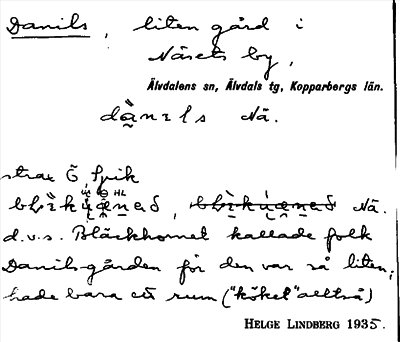 Danils, liten gård i
Näsets by,
Älvdalens sn, Älvdals tg, Kopparbergs län.
dànıls Nä.
strax Ö. Spik
Nä.
d.v.s. Bläckhornet kallade folk
Danils-gården för den var så liten;
hade bara ett rum ("köket" alltså)
HELGE LINDBERG 1935.